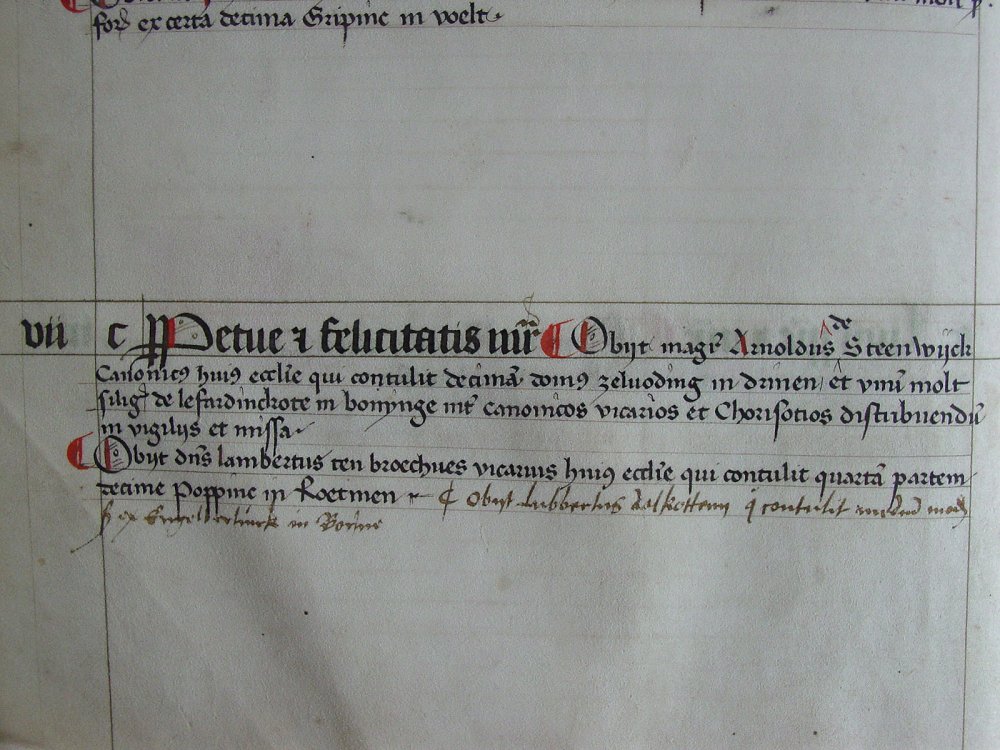 ford ex certa decima Gripinc in voelt
vii c Petue ⁊ felicitatis mr̃r Obijt magr̃ Arnoldus de Steenwijck
Canonicꝰ huiꝰ eccl̃ie qui contulit decimã domꝰ zeluoding in drinen et vnũ molt
silig̃ de lefardinckrote in bonynge int̃ canonicos vicarios et Chorisotios distribuendũ
in vigilijs et missa
Obijt dñs lambertus ten broechues vicarius huiꝰ eccl̃ie qui contulit quartã partem
decime Poppinc in Roetmen Obijt Lubbertus q̃ contulit
in Borne